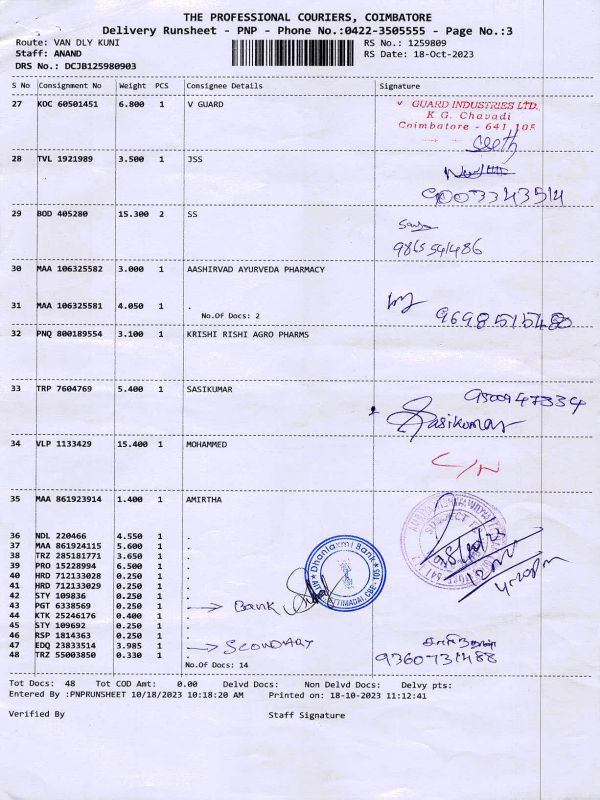 THE PROFESSIONAL COURIERS, COIMBATORE
Delivery Runsheet - PNP - Phone No.:0422-3505555 - Page No.:3
Route: VAN DLY KUNI RS No.: 1259809
Staff: ANAND RS Date: 18-Oct-2023
DRS No.: DCJB125980903
S No Consignment No Weight PCS Consignee Details Signature
27 KOC 60501451 6.800 1 V GUARD
GUARD INDUSTRIES LTD.
K G. Chavadi
Coimbatore - 641 105
28 TVL 1921989 3.500 1 JSS
9003343514
29 BOD 405280 15.300 2 SS
30 MAA 106325582 3.000 1 AASHIRVAD AYURVEDA PHARMACY
31 MAA 106325581 4.050 1 .
No.Of Docs: 2
9698515480
32 PNQ 800189554 3.100 1 KRISHI RISHI AGRO PHARMS
33 TRP 7604769 5.400 1 SASIKUMAR
9500947334
Sasikumar
34 VLP 1133429 15.400 1 MOHAMMED
C/N
35 MAA 861923914 1.400 1 AMIRTHA
36 NDL 220466 4.550 1 .
37 MAA 861924115 5.600 1 .
38 TRZ 285181771 3.650 1 .
39 PRO 15228994 6.500 1 .
40 HRD 712133028 0.250 1 .
41 HRD 712133029 0.250 1 .
42 STY 109836 0.250 1 .
43 PGT 6338569 0.250 1 . Bank
Dhanlaxmi Bank
44 KTK 25246176 0.400 1 .
45 STY 109692 0.250 1 .
46 RSP 1814363 0.250 1 .
47 EDQ 23833514 3.985 1 .
48 TRZ 55003850 0.330 1 .
9360731488
No.Of Docs: 14
Tot Docs: 48 Tot COD Amt: 0.00 Delvd Docs: Non Delvd Docs: Delvy pts:
Entered By :PNPRUNSHEET 10/18/2023 10:18:20 AM Printed on: 18-10-2023 11:12:41
Verified By Staff Signature